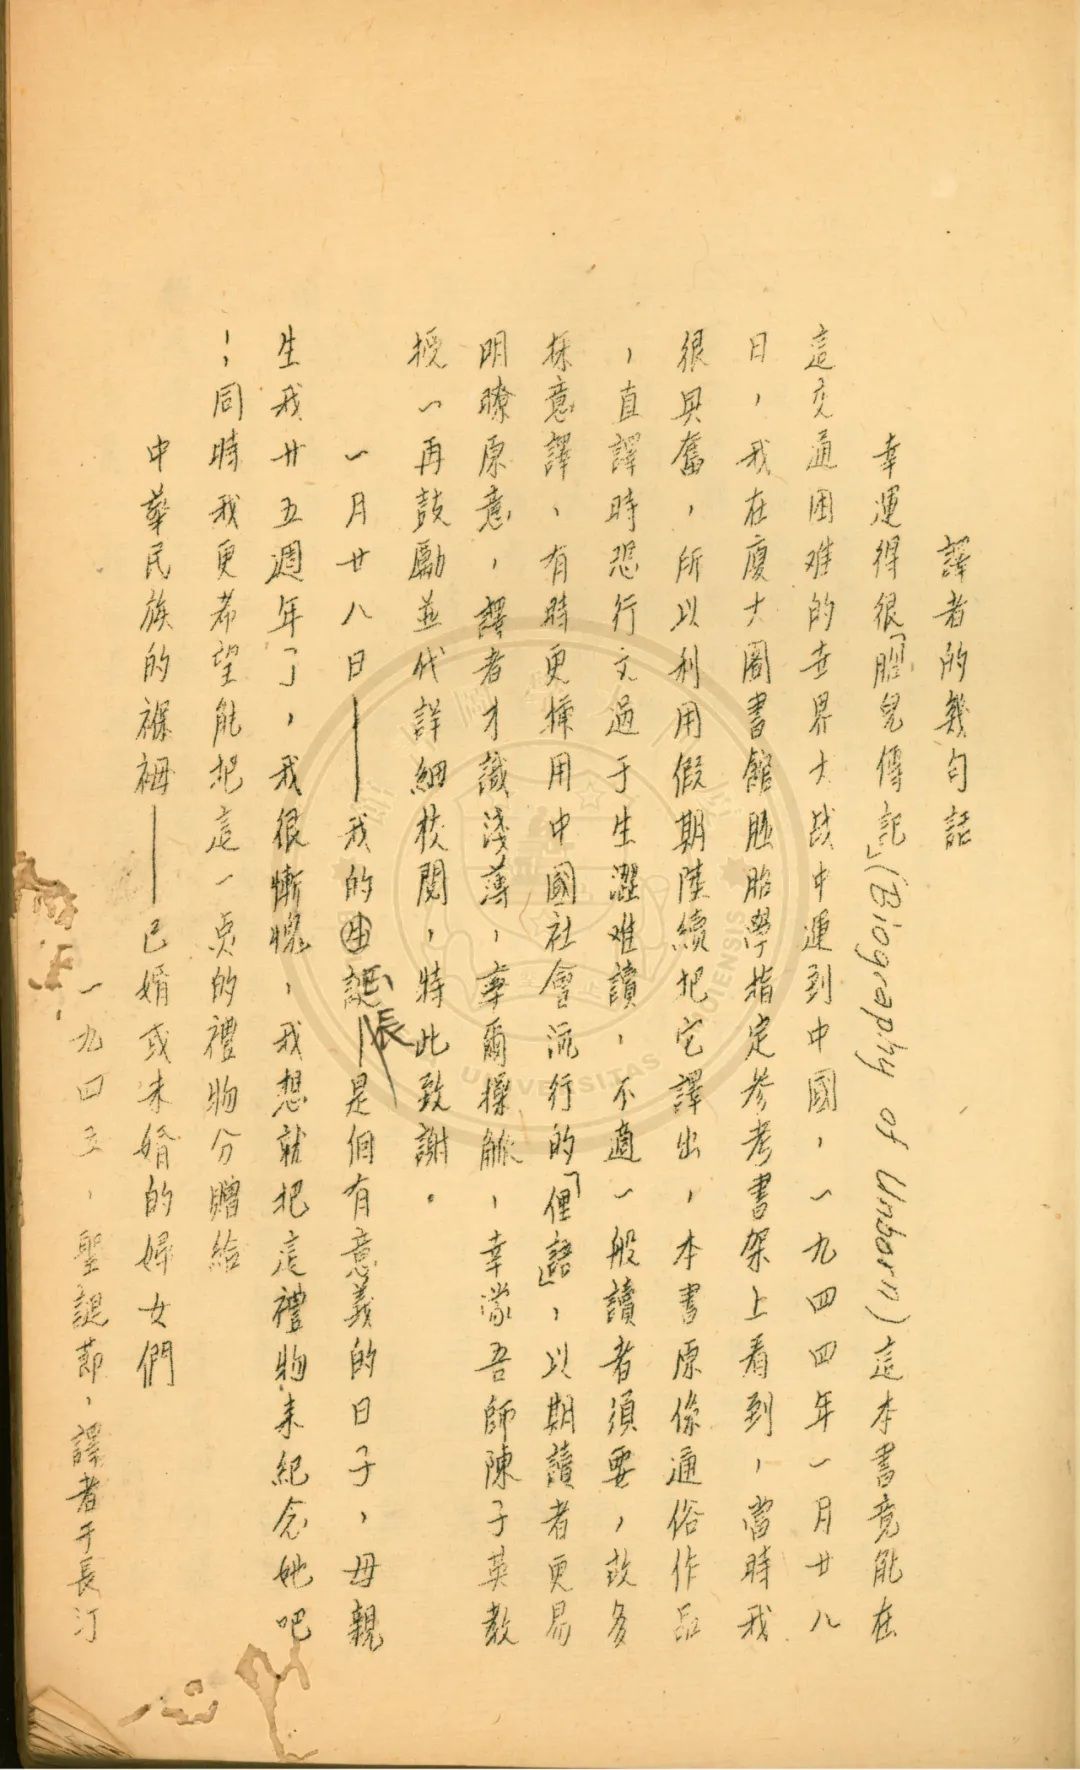 譯者的幾句話
幸運得很「胎兒傳記」(Biography of Unborn)這本書竟能在
這交通困难的世界大战中運到中國，一九四四年一月廿八
日，我在廈大圖書館胚胎學指定參考書架上看到，當時我
很興奮，所以利用假期陸續把它譯出，本書原係通俗作品
，直譯時恐行文過于生澀难讀，不適一般讀者須要，故多
採意譯，有時更擇用中國社會流行的「俚語」，以期讀者更易
明瞭原意，譯者才識淺薄，率爾操觚，幸蒙吾師陳子英教
授一再鼓勵並代詳細校閱，特此致謝。
一月廿八日——我的生誕——是個有意義的日子，母親
生我廿五週年了，我很慚愧，我想就把這禮物来紀念她吧
！，同時我更希望能把這一点的禮物分贈給
中華民族的褓姆——已婚或未婚的婦女們
一九四五，聖誕節，譯者于長汀
UNIVERSITAS